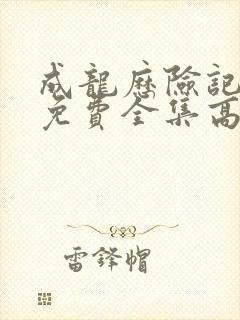 成龍歷險記
免費全集高
雷鋒帽